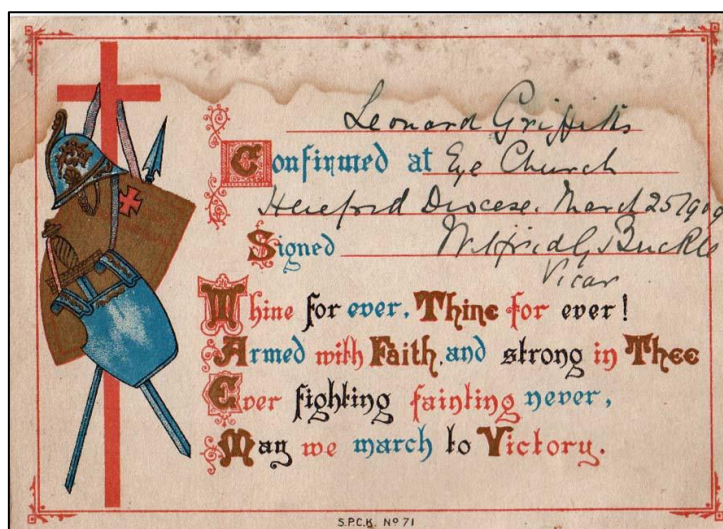 Leonard Griffiths
Confirmed at Eye Church
Hereford Diocese. March 25 1909
Signed Wilfrid G. Buckle
Vicar
Thine for ever, Thine for ever!
Armed with Faith, and strong in Thee
Ever fighting fainting never,
May we march to Victory.
S.P.C.K. Nº 71